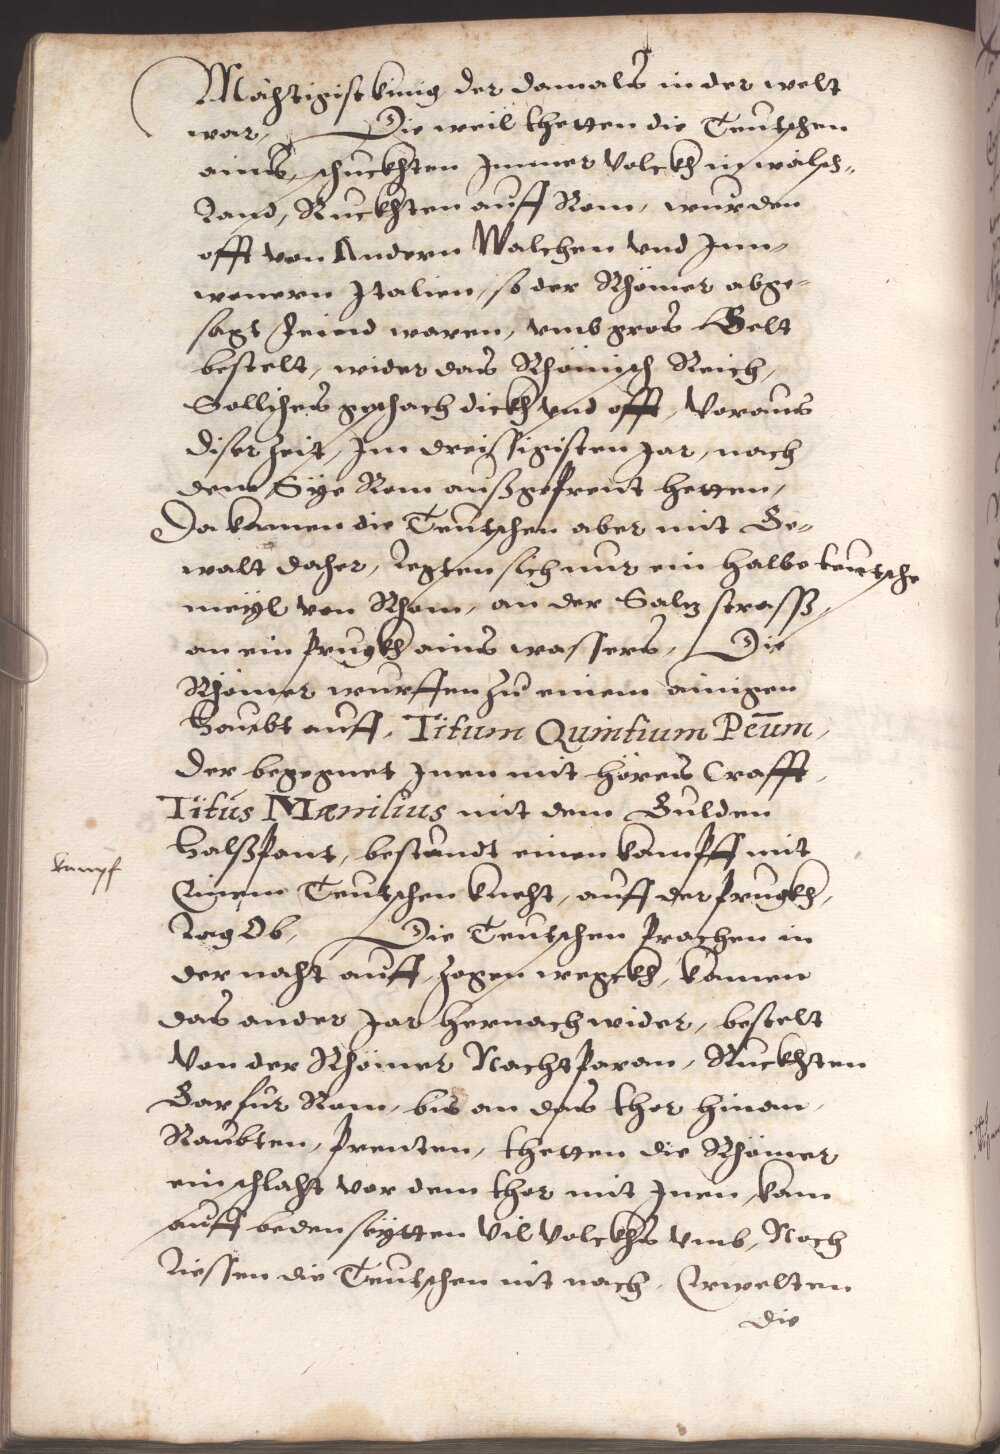 Mächtigist kinig der damals in der welt
war, Die weil thetten die Teutschen
ains, schuckhten Immer Volckh in wälsch-
Land, Ruckhten auff Rom, wurden
offt von Andern Walchen vnd Inn-
wonern Italien, so der Rhömer abge-
sagt feiend waren, vmb gros Gelt
bestelt, wider das Rhömisch Reich,
Sollichs geschach dickh vnd offt, Voraus
diser Zeit, Im dreissigisten Jar, nach
dem Sÿe Rom außgeprent hetten,
Da kamen die Teutschen aber mit Ge-
walt daher, Legten sich nur ein halbe teutsche
meÿl von Rhom, an der Saltz strasß,
an ein prugkh ains wassers, Die
Rhömer wurffen Zu einem ainigen
haubt auff, Titum Quintium Peum,
Der begegnet Inen mit höres Crafft,
Titus Mænilius mit dem Gulden
halßpant, bestundt einen kampff mit
kampf
Einem Teutschen knecht, auff der prugkh,
Lag Ob, Die Teutschen prachen in
der nacht auff, Zogen wegckh, kamen
das ander Jar hernach wider, bestelt
Von der Rhömer Nachtparan, Ruckhten
Gar für Rom, bis an das thor hinan,
Raubten, prenten, thetten die Rhömer
ein schlacht vor dem thor mit Inen, kam
auff beden seÿtten Vil Volckhs vmb, Noch
Liessen die Teutschen nit nach, Erwelten
die